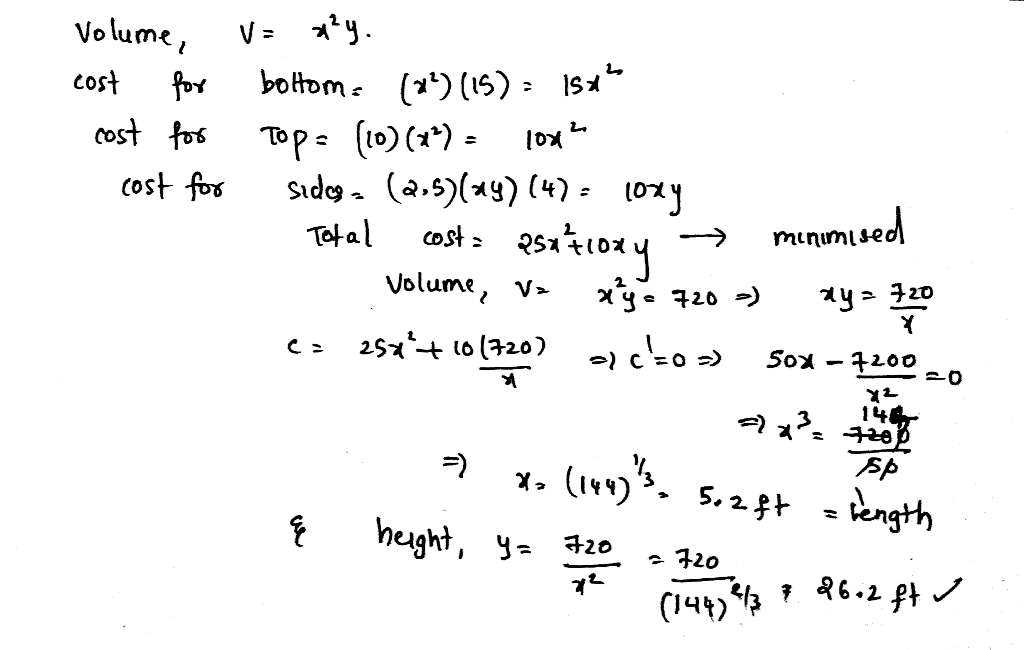 Volume, V = x²y.
cost for bottom = (x²)(15) = 15x²
cost for Top = (10)(x²) = 10x²
cost for sides = (2.5)(xy)(4) = 10xy
Total cost = 25x²+10xy → minimised
Volume, V = x²y = 720 => xy = 720/x
c = 25x² + 10(720)/x => c'=0 => 50x - 7200/x² = 0
=> x³ = 7200/50 144
=> x = (144)^1/3 = 5.2 ft = length
& height, y = 720/x² = 720/(144)^2/3 = 26.2 ft ✓